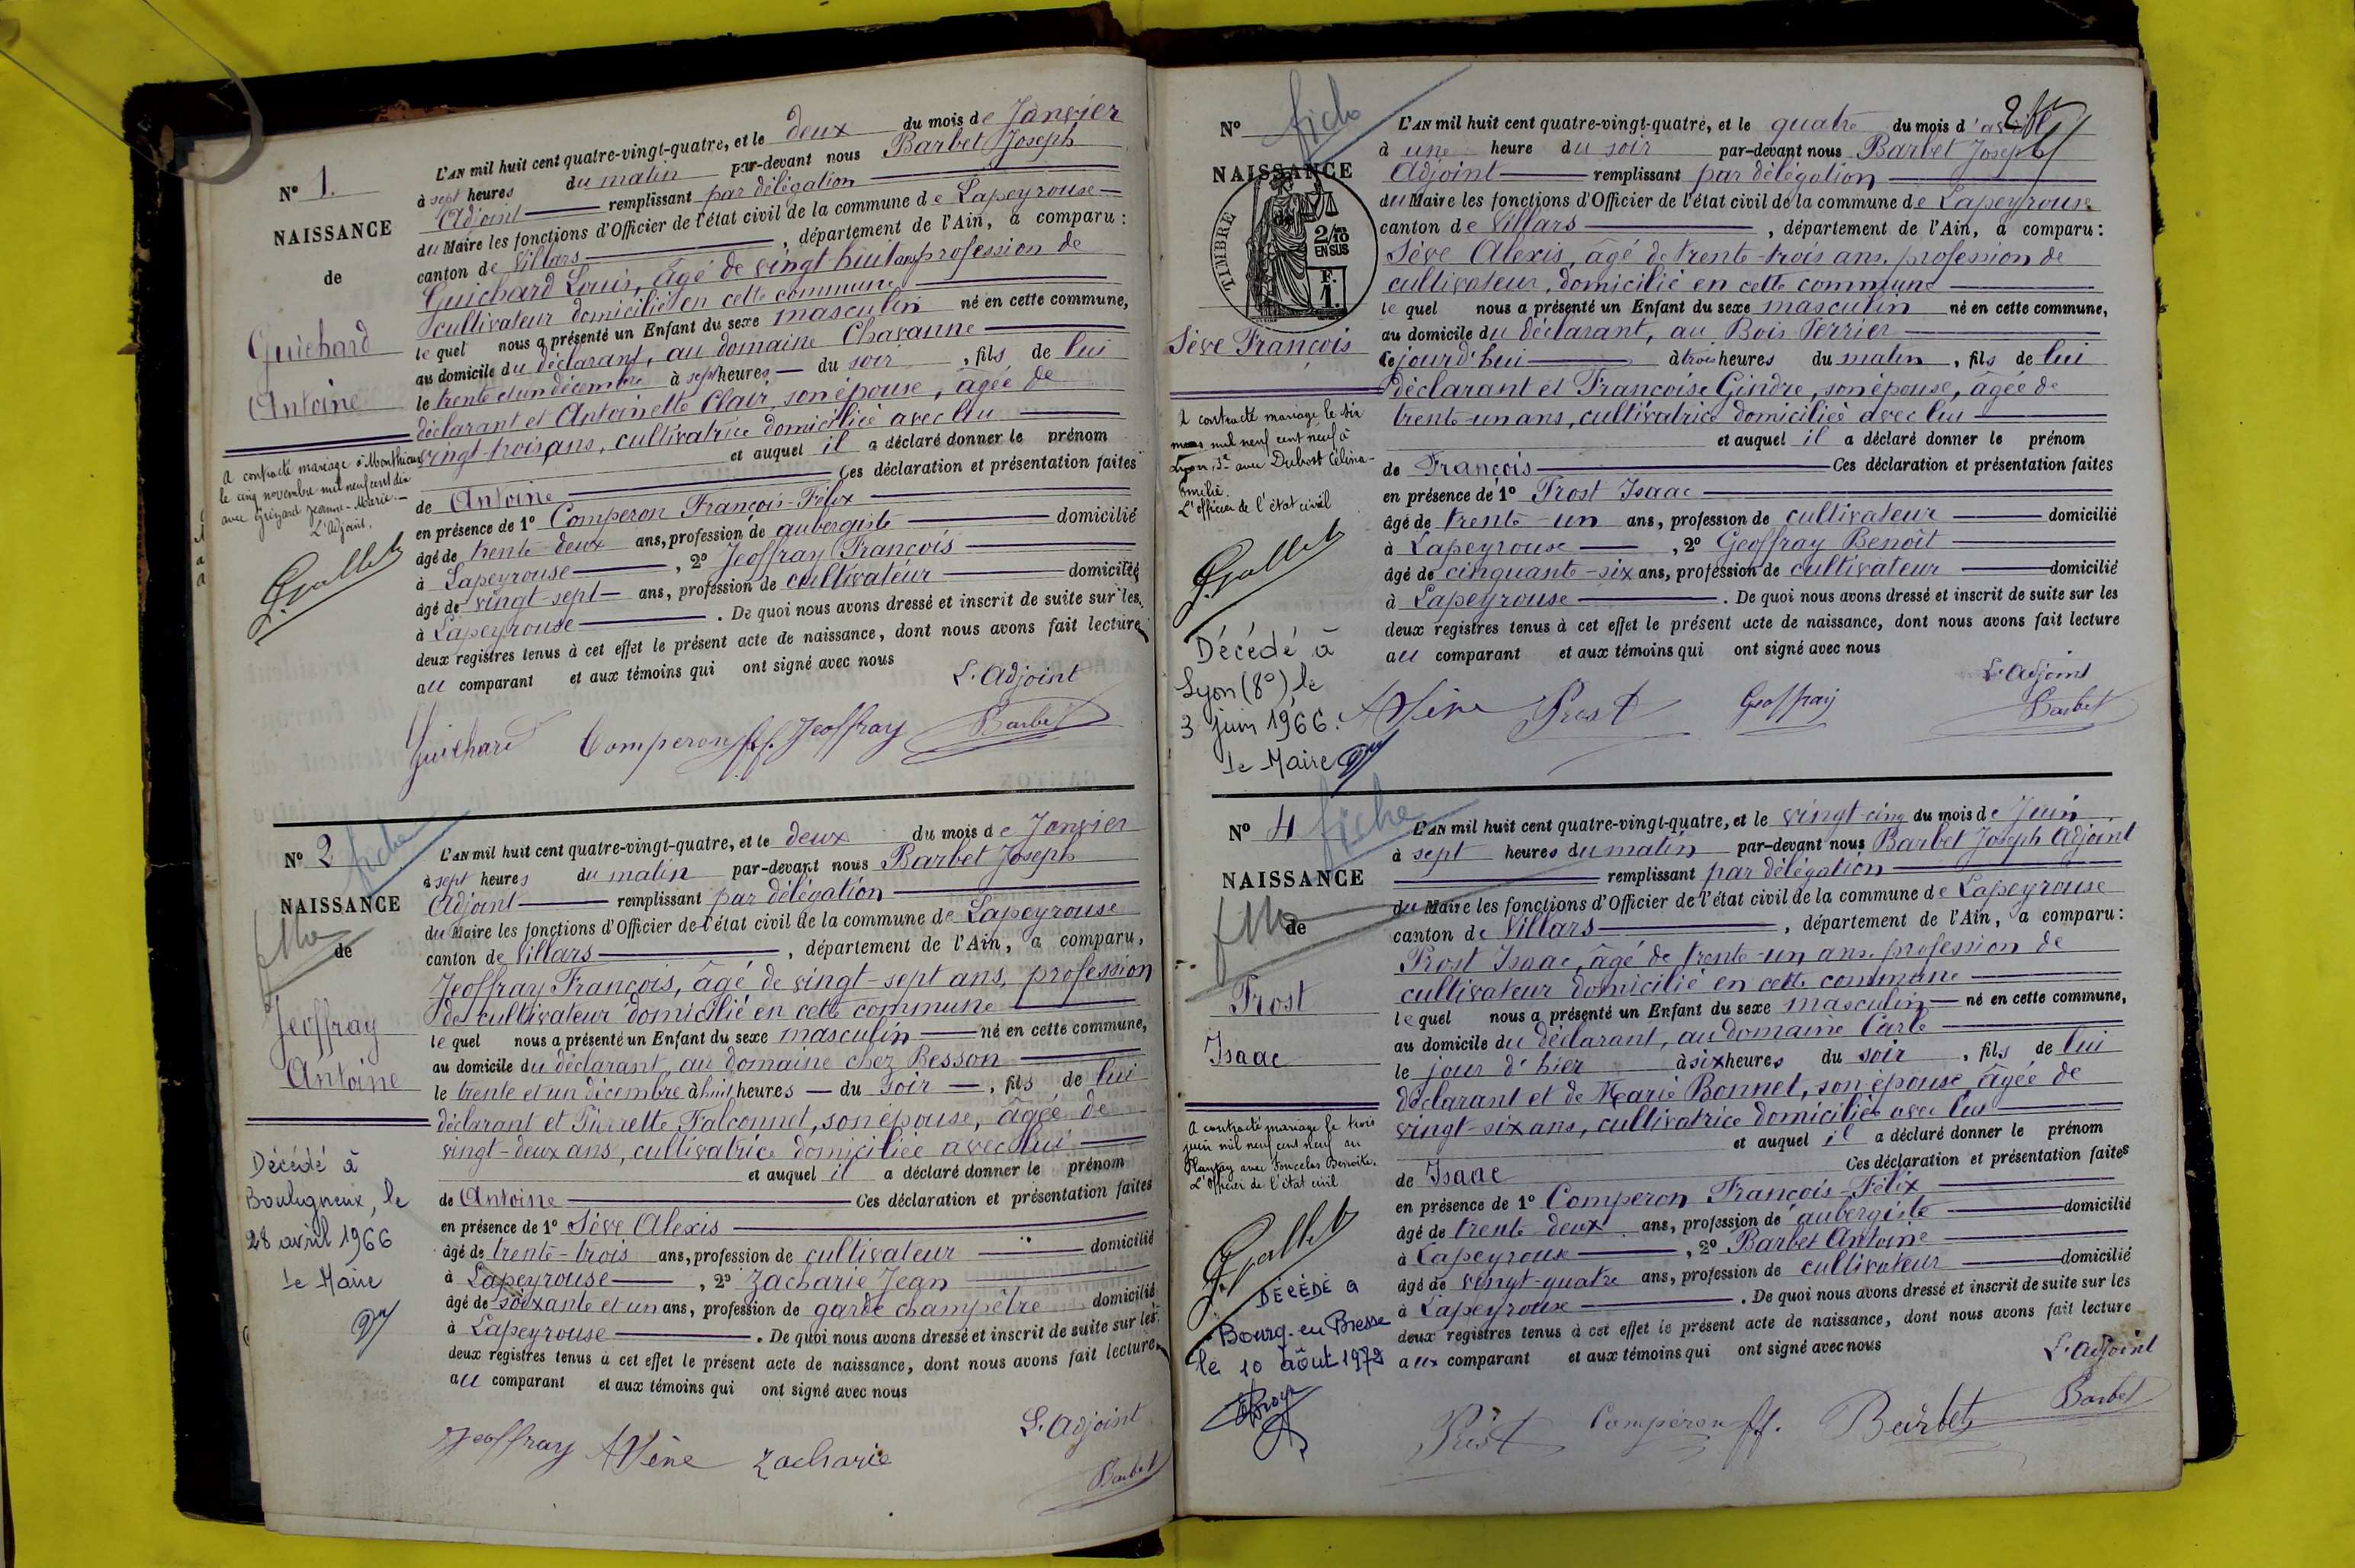 N° 1.
NAISSANCE
de
Guichard
Antoine
A contracté mariage à Monthieux
le cinq novembre mil neuf cent dix
avec Grégard Jeanne-Marie.—
L'Adjoint.
Gallet
L'AN mil huit cent quatre-vingt-quatre, et le deux du mois de Janvier
à sept heures du matin par-devant nous Barbet Joseph
Adjoint remplissant par délégation
du Maire les fonctions d'Officier de l'état civil de la commune de Lapeyrouse
canton de Villars, département de l'Ain, a comparu :
Guichard Louis, âgé de vingt huit ans profession de
cultivateur domicilié en cette commune
le quel nous a présenté un Enfant du sexe masculin né en cette commune,
au domicile du déclarant, au domaine Chavanne
le trente et un décembre à sept heures — du soir, fils de lui
déclarant et Antoinette Clair, son épouse, âgée de
vingt-trois ans, cultivatrice domiciliée avec lui
et auquel il a déclaré donner le prénom
de Antoine Ces déclaration et présentation faites
en présence de 1° Comperon François-Félix
âgé de trente-deux ans, profession de aubergiste domicilié
à Lapeyrouse, 2° Jeoffray François
âgé de vingt-sept ans, profession de cultivateur domicilié
à Lapeyrouse. De quoi nous avons dressé et inscrit de suite sur les
deux registres tenus à cet effet le présent acte de naissance, dont nous avons fait lecture
au comparant et aux témoins qui ont signé avec nous
L'Adjoint
Guichard Comperon ff. Jeoffray Barbet
N° 2
fiche
NAISSANCE
de
Jeoffray
Antoine
Décédé à
Bouligneux, le
28 avril 1966
le Maire
L'AN mil huit cent quatre-vingt-quatre, et le deux du mois de Janvier
à sept heures du matin par-devant nous Barbet Joseph
Adjoint remplissant par délégation
du Maire les fonctions d'Officier de l'état civil de la commune de Lapeyrouse
canton de Villars, département de l'Ain, a comparu,
Jeoffray François, âgé de vingt-sept ans, profession
de cultivateur domicilié en cette commune
le quel nous a présenté un Enfant du sexe masculin né en cette commune,
au domicile du déclarant, au domaine chez Besson
le trente et un décembre à huit heures — du soir —, fils de lui
déclarant et Pierrette Falconnet, son épouse, âgée de
vingt-deux ans, cultivatrice domiciliée avec lui
et auquel il a déclaré donner le prénom
de Antoine Ces déclaration et présentation faites
en présence de 1° Sève Alexis
âgé de trente-trois ans, profession de cultivateur domicilié
à Lapeyrouse, 2° Zacharie Jean
âgé de soixante et un ans, profession de garde champêtre domicilié
à Lapeyrouse. De quoi nous avons dressé et inscrit de suite sur les
deux registres tenus à cet effet le présent acte de naissance, dont nous avons fait lecture,
au comparant et aux témoins qui ont signé avec nous
L'Adjoint
Jeoffray A Sève Zacharie Barbet
2
N°
fiche
NAISSANCE
de
TIMBRE
2/10 EN SUS
F.
1.
Sève François
A contracté mariage le six
mars mil neuf cent neuf à
Lyon, 3e avec Dubost Célina-
Emélie.
L'officier de l'état civil
Gallet
Décédé à
Lyon (8°), le
3 juin 1966.
le Maire
L'AN mil huit cent quatre-vingt-quatre, et le quatre du mois d'avril
à une heure du soir par-devant nous Barbet Joseph
Adjoint remplissant par délégation
du Maire les fonctions d'Officier de l'état civil de la commune de Lapeyrouse
canton de Villars, département de l'Ain, a comparu :
Sève Alexis, âgé de trente-trois ans, profession de
cultivateur, domicilié en cette commune
le quel nous a présenté un Enfant du sexe masculin né en cette commune,
au domicile du déclarant, au Bois Perrier
Cejourd'hui à trois heures du matin, fils de lui
déclarant et Françoise Gindre, son épouse, âgée de
trente-un ans, cultivatrice domiciliée avec lui
et auquel il a déclaré donner le prénom
de François Ces déclaration et présentation faites
en présence de 1° Prost Isaac
âgé de trente-un ans, profession de cultivateur domicilié
à Lapeyrouse, 2° Geoffray Benoît
âgé de cinquante-six ans, profession de cultivateur domicilié
à Lapeyrouse. De quoi nous avons dressé et inscrit de suite sur les
deux registres tenus à cet effet le présent acte de naissance, dont nous avons fait lecture
au comparant et aux témoins qui ont signé avec nous
L'Adjoint
A Sève Prost Geoffray Barbet
N° 4
fiche
NAISSANCE
de
Prost
Isaac
A contracté mariage le trois
juin mil neuf cent neuf au
Plantay avec Poncelas Benoîte.
L'Officier de l'état civil
Gallet
DÉCÉDÉ à
Bourg-en-Bresse
le 10 août 1972
L'AN mil huit cent quatre-vingt-quatre, et le vingt-cinq du mois de Juin
à sept heures du matin par-devant nous Barbet Joseph Adjoint
remplissant par délégation
du Maire les fonctions d'Officier de l'état civil de la commune de Lapeyrouse
canton de Villars, département de l'Ain, a comparu :
Prost Isaac, âgé de trente-un ans, profession de
cultivateur domicilié en cette commune
le quel nous a présenté un Enfant du sexe masculin né en cette commune,
au domicile du déclarant, au domaine Carle
le jour d'hier à six heures du soir, fils de lui
déclarant et de Marie Bonnet, son épouse, âgée de
vingt-six ans, cultivatrice domiciliée avec lui
et auquel il a déclaré donner le prénom
de Isaac Ces déclaration et présentation faites
en présence de 1° Comperon François-Félix
âgé de trente-deux ans, profession de aubergiste domicilié
à Lapeyrouse, 2° Barbet Antoine
âgé de vingt-quatre ans, profession de cultivateur domicilié
à Lapeyrouse. De quoi nous avons dressé et inscrit de suite sur les
deux registres tenus à cet effet le présent acte de naissance, dont nous avons fait lecture
aux comparant et aux témoins qui ont signé avec nous
L'Adjoint
Prost Comperon ff. Barbet Barbet